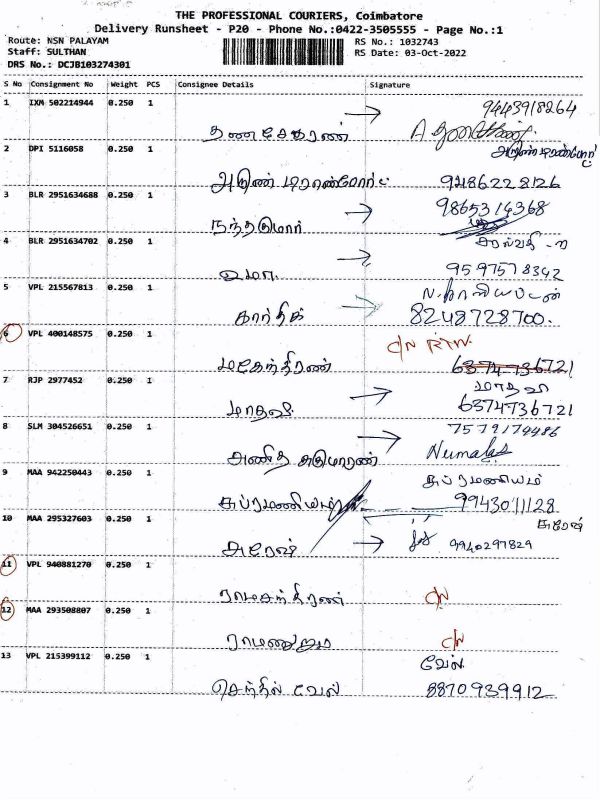 THE PROFESSIONAL COURIERS, Coimbatore
Delivery Runsheet - P20 - Phone No.:0422-3505555 - Page No.:1
Route: NSN PALAYAM RS No.: 1032743
Staff: SULTHAN RS Date: 03-Oct-2022
DRS No.: DCJB103274301
S No Consignment No Weight PCS Consignee Details Signature
1 IXM 502214944 0.250 1 9443918264
தனசேகரண்
2 DPI 5116058 0.250 1 அருண் டிரான்ஸ்போர்ட்
அருண் டிரான்ஸ்போர்ட் 9486228126
3 BLR 2951634688 0.250 1 9865314368
நந்தகுமார்
4 BLR 2951634702 0.250 1
உமா 9597578342
5 VPL 215567813 0.250 1
கார்த்திக் 8248728700.
6 VPL 400148575 0.250 1 C/N RTN.
மகேந்திரண் 6374736721
7 RJP 2977452 0.250 1 மாதவி
மாதவி 6374736721
8 SLM 304526651 0.250 1 7579179486
9 MAA 942250443 0.250 1 சுப்ரமணியம்
சுப்ரமணியம் 9943011128
10 MAA 295327603 0.250 1 சுரேஷ்
சுரேஷ் 9940297829
11 VPL 940881270 0.250 1
ராமசந்திரண் C/N
12 MAA 293508807 0.250 1
C/N
13 VPL 215399112 0.250 1 வேல்
செந்தில் வேல் 8870939912